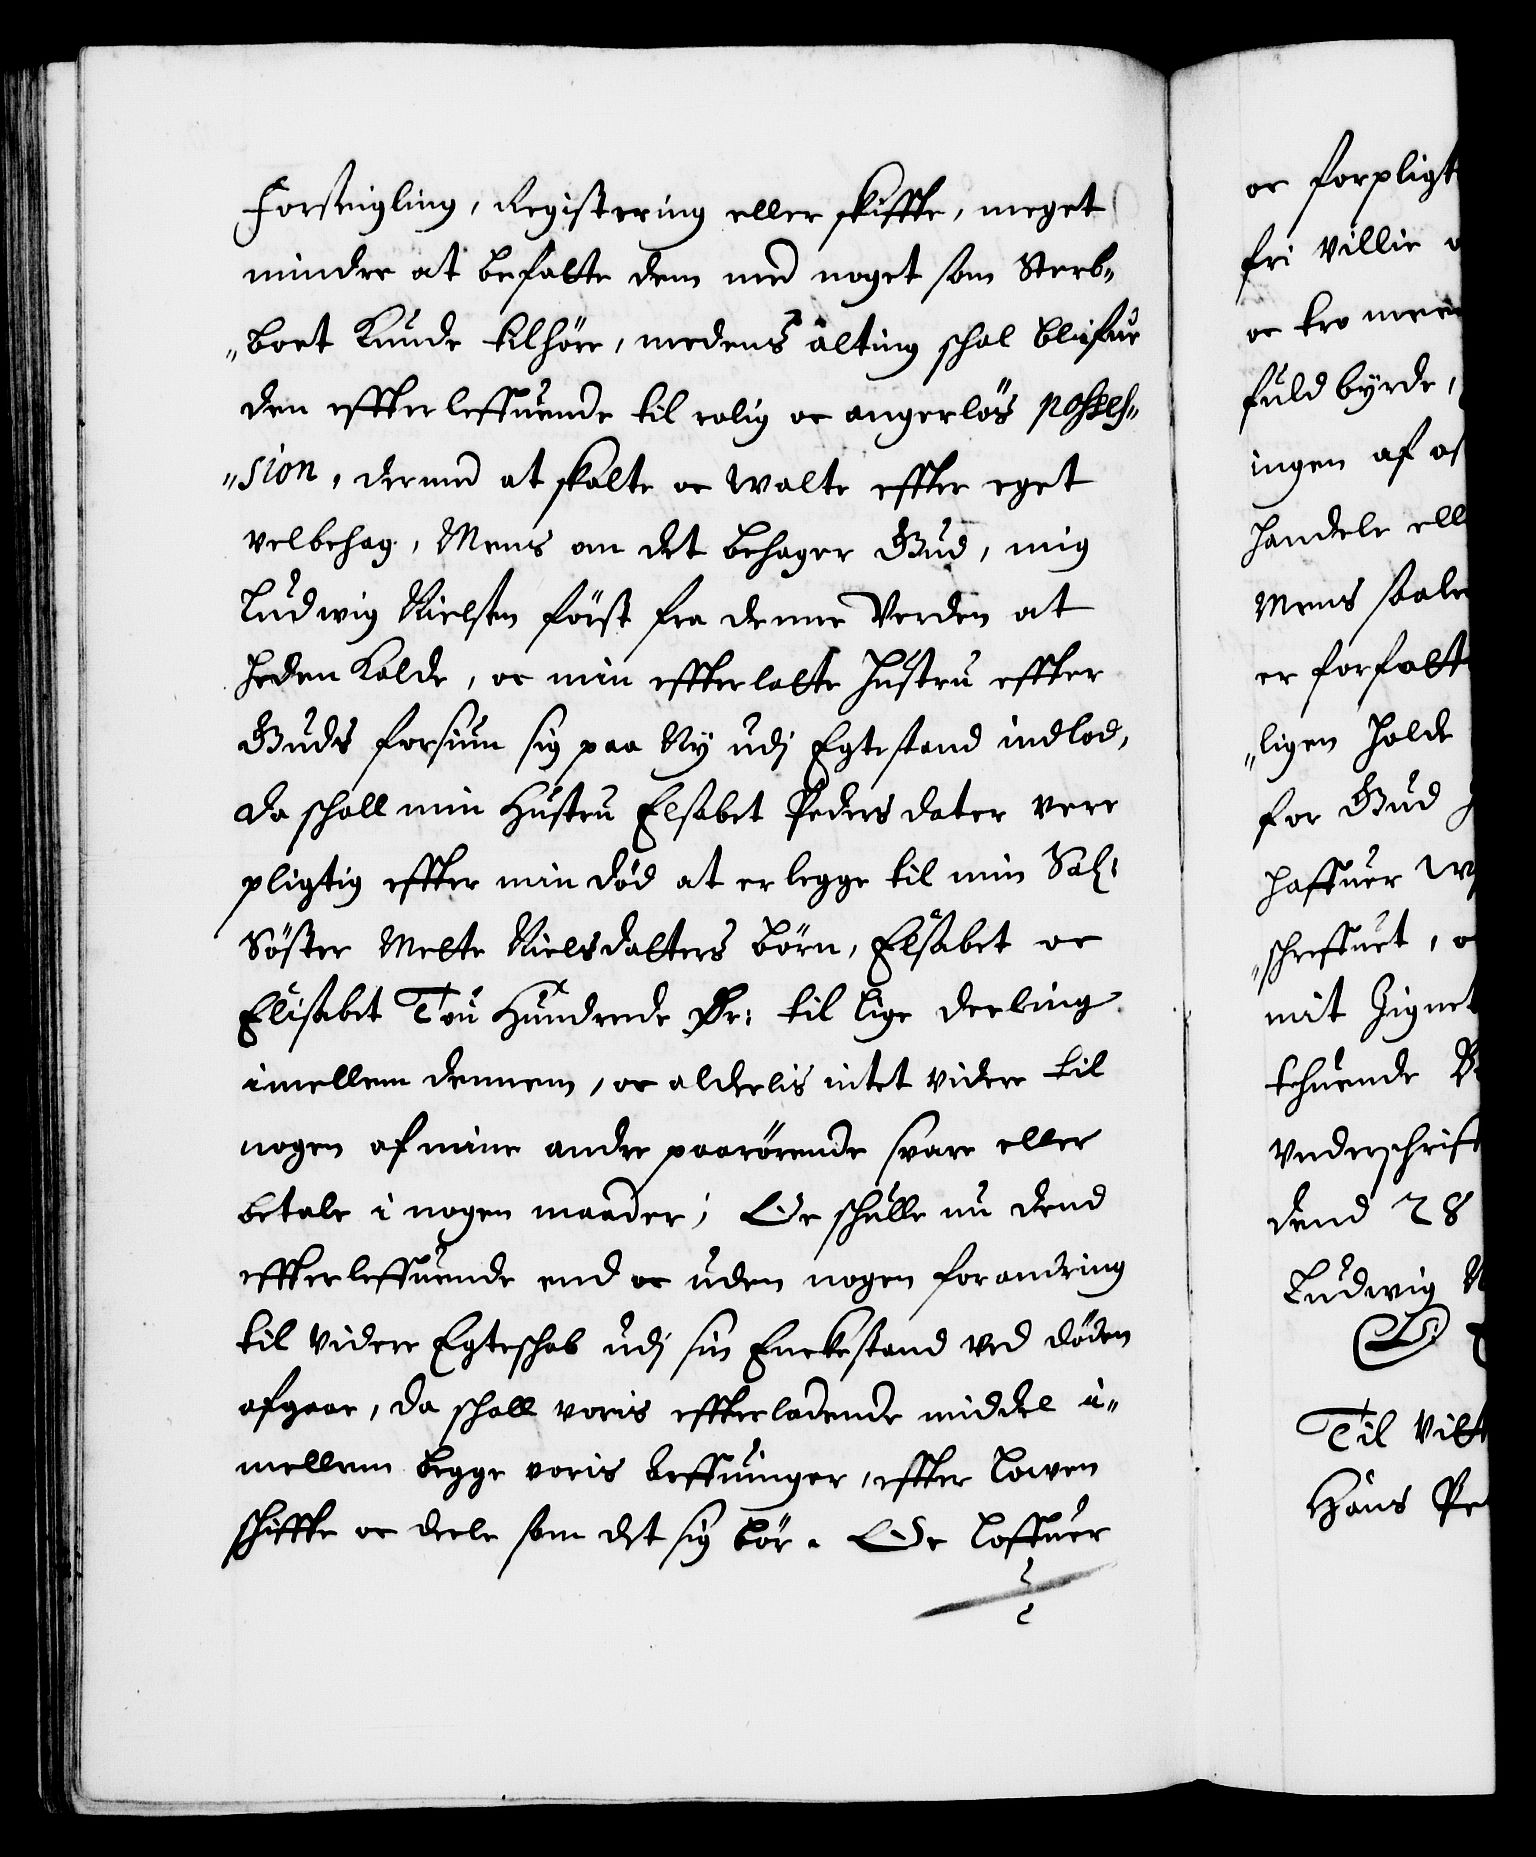 Forseigling, Registering eller skiffte, meget
mindre at befatte dem med noget som Sterb„
„boet kunde tilhöre, medens alting schal blifue
den effterleffuende til rolig oc angerlös posses„
„sion, dermed at skalte oc walte effter eget
velbehag, Mens om det behager Gud, mig
Ludwig Nielsen först fra denne Verden at
heden kalde, oc min effterlatte Hustru effter
Guds forsiun sig paa Ny udj Egtestand indlod,
da schall min Hustru Elsabet Peders dater vere
pligtig effter min död at erlegge til min Sal:
Söster Mette Nielsdatters börn, Elsabet oc
Elisabet Tou Hundrede Dr: til lige deeling
imellem dennem, oc alderlis intet videre til
nogen af mine andre paarörende svare eller
betale i nogen maader; Oc schulle nu dend
effterleffuende end oc uden nogen forandring
til videre Egteschab udj sin Enckestand ved döden
afgaae, da schall voris effterladende middel i„
mellem begge voris arffuinger, effter lowen
schiffte oc deele som det sig bör. Oc loffuer
oc forpligt
fri villie
oc tro
fuldbyrde,
ingen af
handele ell
Mens saale
er forfatt
„ligen holde
for Gud
haffuer
„schreffuet,
mit Zignet
tehuende
Underschrift
dend 28
Ludwig N
Til Vitt
Hans Pe